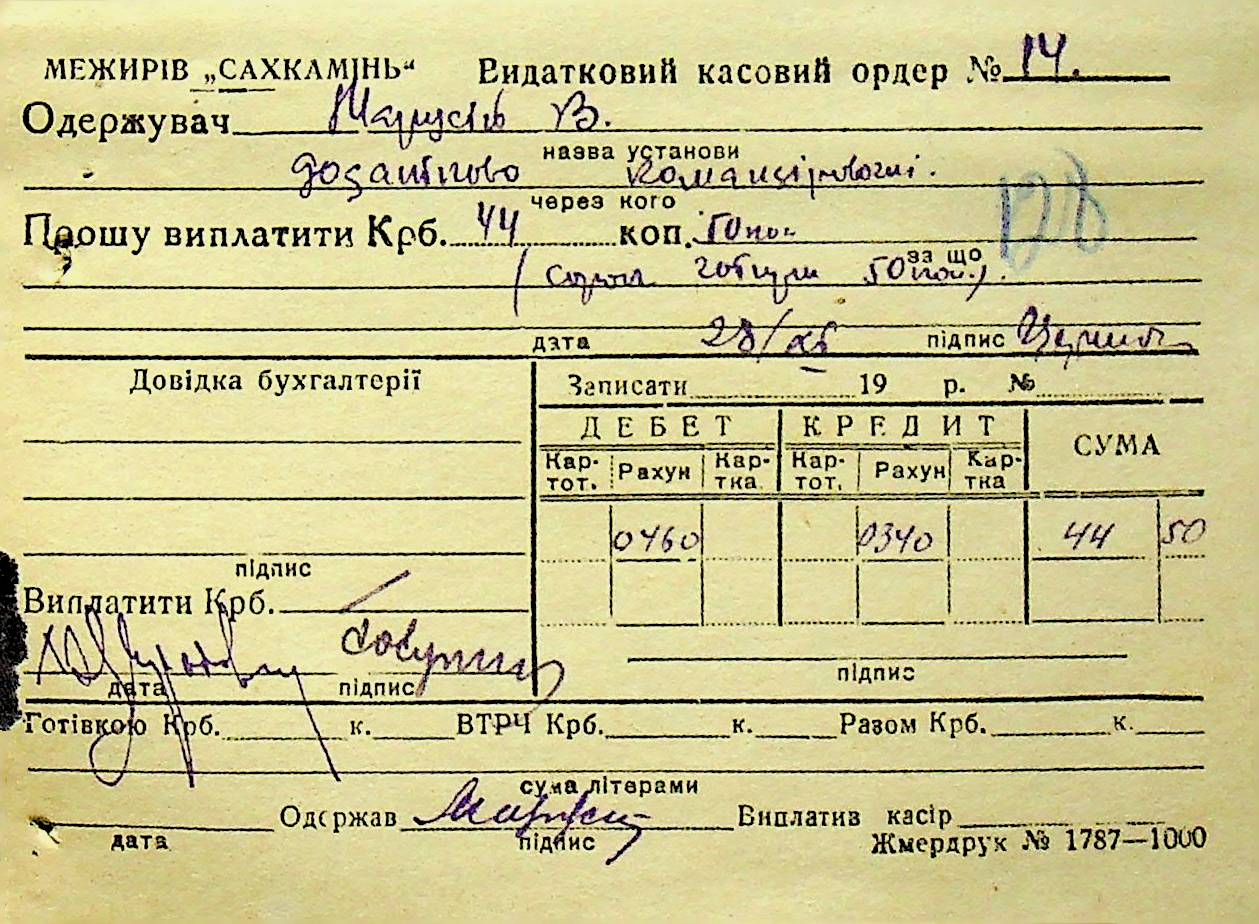 МЕЖИРІВ „САХКАМІНЬ“ Видатковий касовий ордер № 14.
Одержувач В.
назва установи
через кого
Прошу виплатити Крб. 44 коп. 50 коп.
за що
50 коп.)
дата 28/ підпис
Довідка бухгалтерії
Записати 19 р. №
ДЕБЕТ КРЕДИТ СУМА
Кар-тот. Рахун Кар-тка Кар-тот. Рахун Кар-тка
0460 0340 44 50
підпис
Виплатити Крб.
дата підпис
підпис
Готівкою Крб. к. ВТРЧ Крб. к. Разом Крб. к.
сума літерами
Одержав Виплатив касір
дата підпис
Жмердрук № 1787—1000